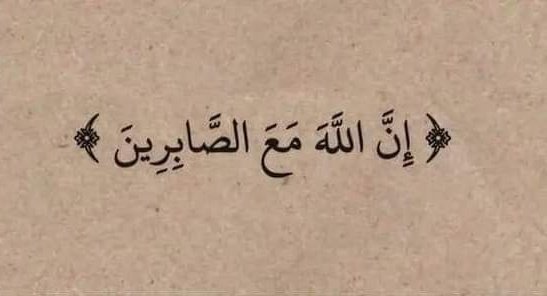 ﴿ إِنَّ اللَّهَ مَعَ الصَّابِرِينَ ﴾